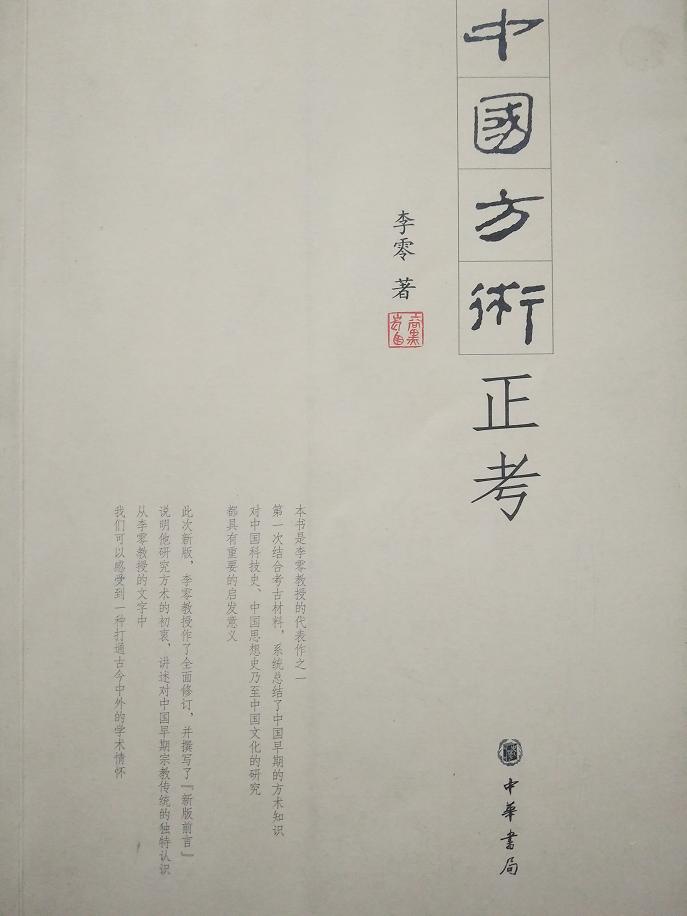 中國方術
正考
李零 著
本书是李零教授的代表作之一
第一次结合考古材料，系统总结了中国早期的方术知识
对中国科技史、中国思想史乃至中国文化的研究
都具有重要的启发意义
此次新版，李零教授作了全面修订，并撰写了『新版前言』
说明他研究方术的初衷，讲述对中国早期宗教传统的独特认识
从李零教授的文字中
我们可以感受到一种打通古今中外的学术情怀
中華書局